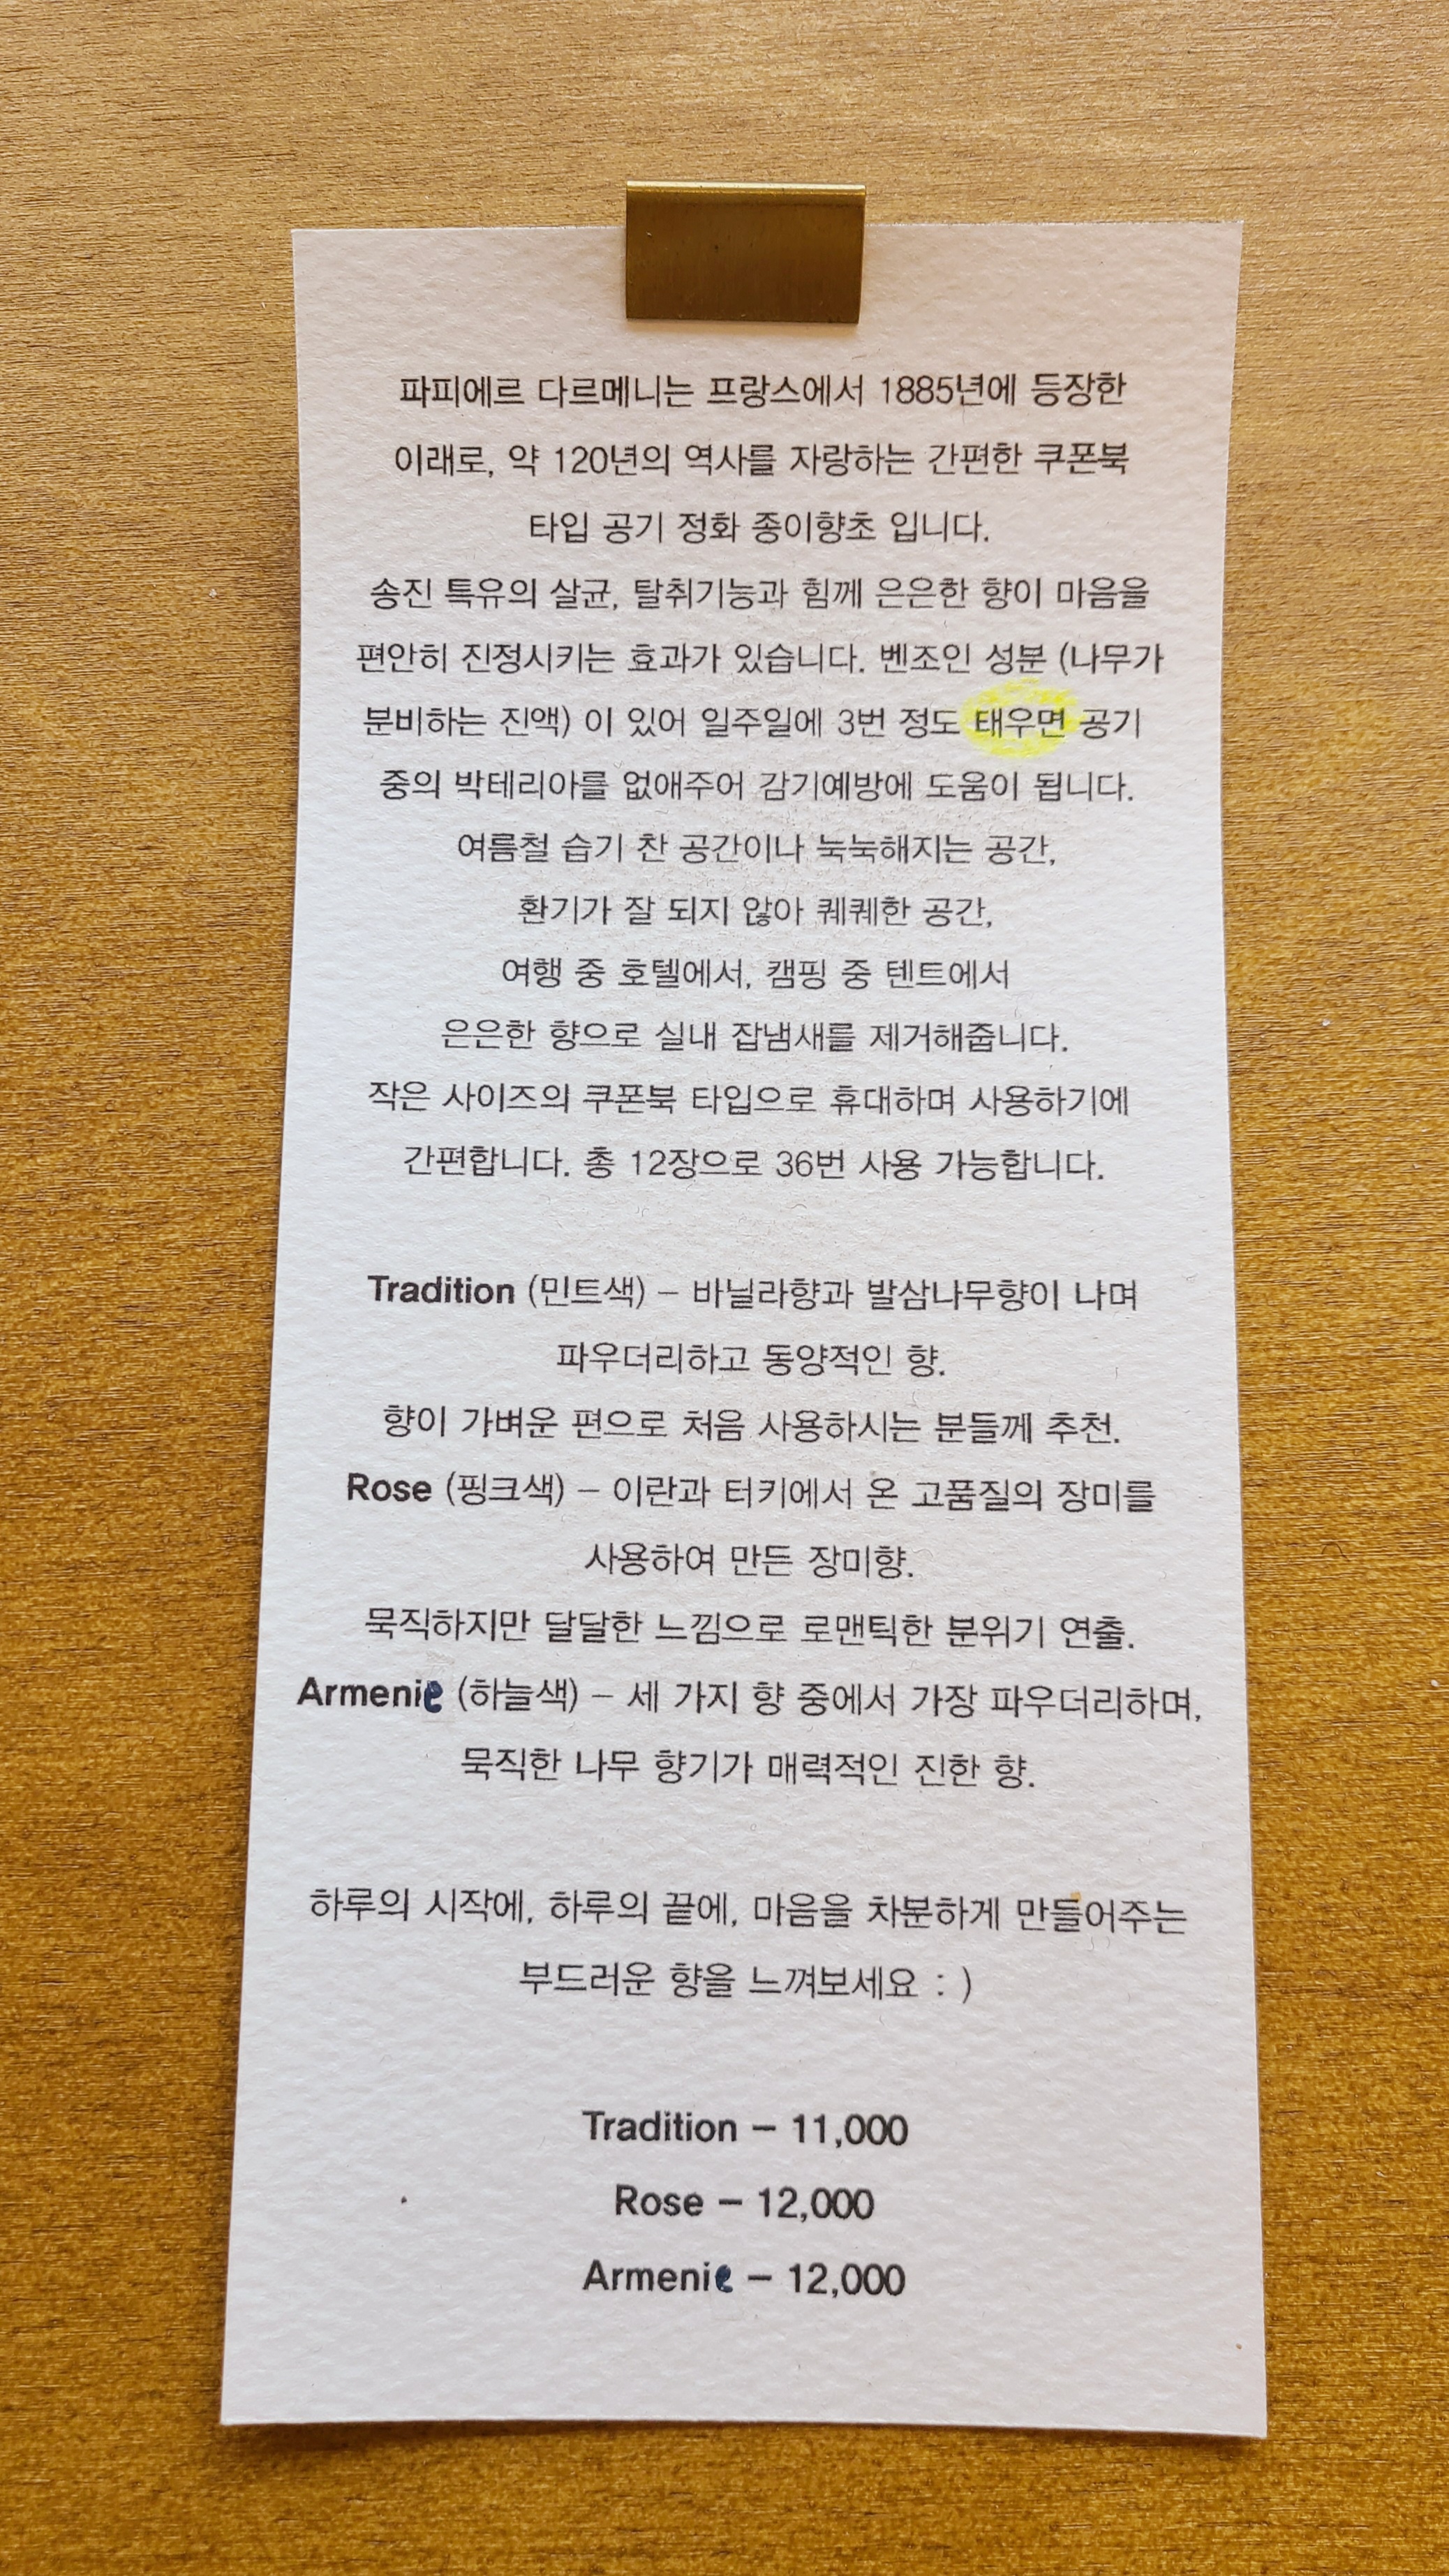 파피에르 다르메니는 프랑스에서 1885년에 등장한
이래로, 약 120년의 역사를 자랑하는 간편한 쿠폰북
타입 공기 정화 종이향초 입니다.
송진 특유의 살균, 탈취기능과 힘께 은은한 향이 마음을
편안히 진정시키는 효과가 있습니다. 벤조인 성분 (나무가
분비하는 진액) 이 있어 일주일에 3번 정도 태우면 공기
중의 박테리아를 없애주어 감기예방에 도움이 됩니다.
여름철 습기 찬 공간이나 눅눅해지는 공간,
환기가 잘 되지 않아 퀘퀘한 공간,
여행 중 호텔에서, 캠핑 중 텐트에서
은은한 향으로 실내 잡냄새를 제거해줍니다.
작은 사이즈의 쿠폰북 타입으로 휴대하며 사용하기에
간편합니다. 총 12장으로 36번 사용 가능합니다.
Tradition (민트색) – 바닐라향과 발삼나무향이 나며
파우더리하고 동양적인 향.
향이 가벼운 편으로 처음 사용하시는 분들께 추천.
Rose (핑크색) – 이란과 터키에서 온 고품질의 장미를
사용하여 만든 장미향.
묵직하지만 달달한 느낌으로 로맨틱한 분위기 연출.
Armenie (하늘색) – 세 가지 향 중에서 가장 파우더리하며,
묵직한 나무 향기가 매력적인 진한 향.
하루의 시작에, 하루의 끝에, 마음을 차분하게 만들어주는
부드러운 향을 느껴보세요 : )
Tradition – 11,000
Rose – 12,000
Armenie – 12,000